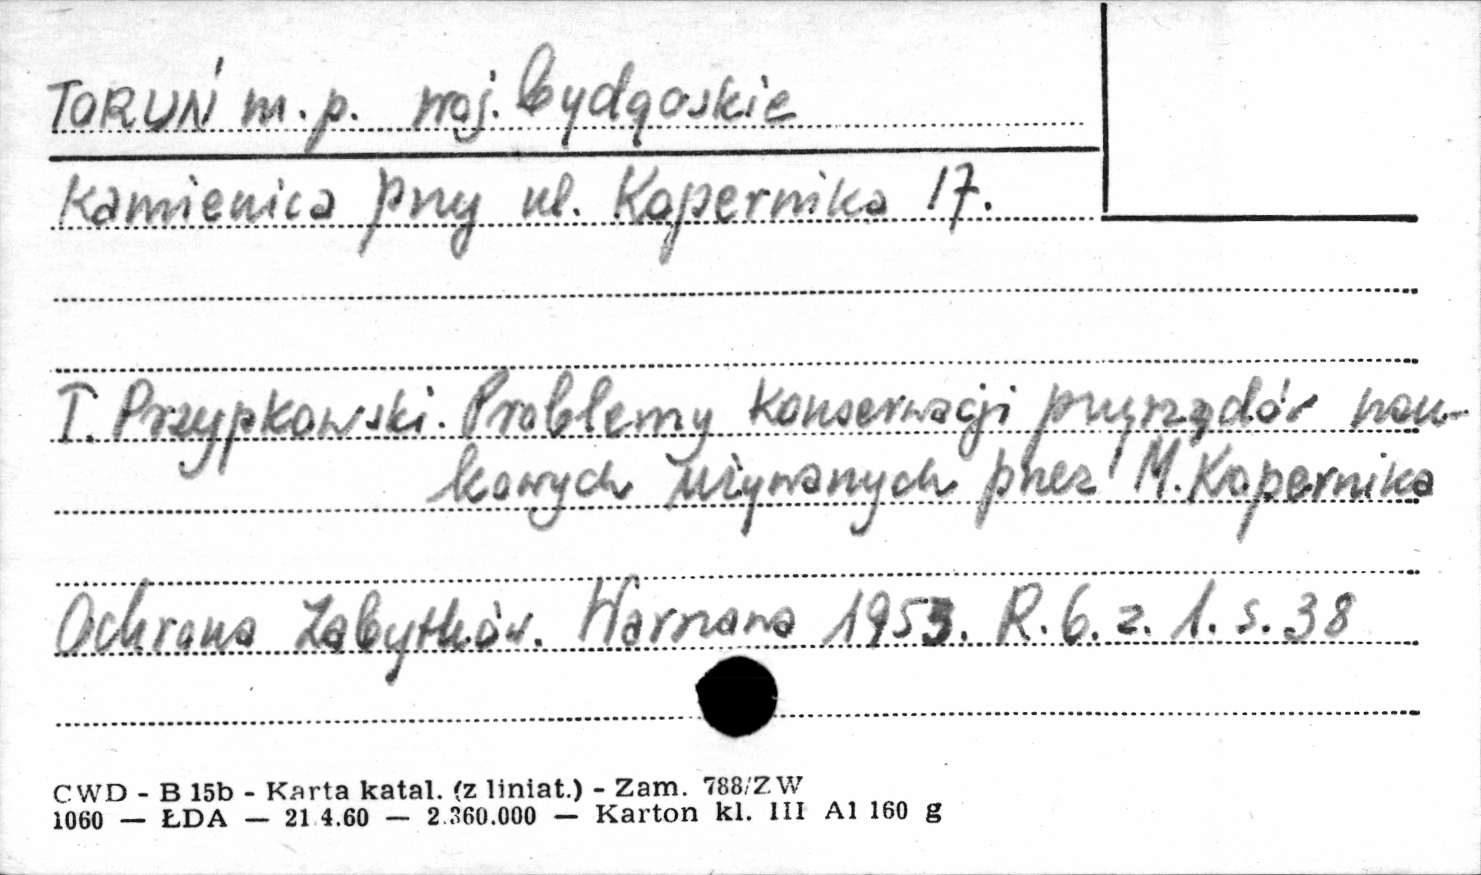 TORUŃ m.p. woj. bydgoskie
Kamienica przy ul. Kopernika 17.
T. Przypkowski. Problemy konserwacji przyrządów nau-
kowych używanych przez M. Kopernika
Ochrona Zabytków. Warszawa 1953. R. 6. z. 1. s. 38
CWD - B 15b - Karta katal. (z liniat.) - Zam. 788/ZW
1060 — ŁDA — 21.4.60 — 2.360.000 — Karton kl. III A1 160 g